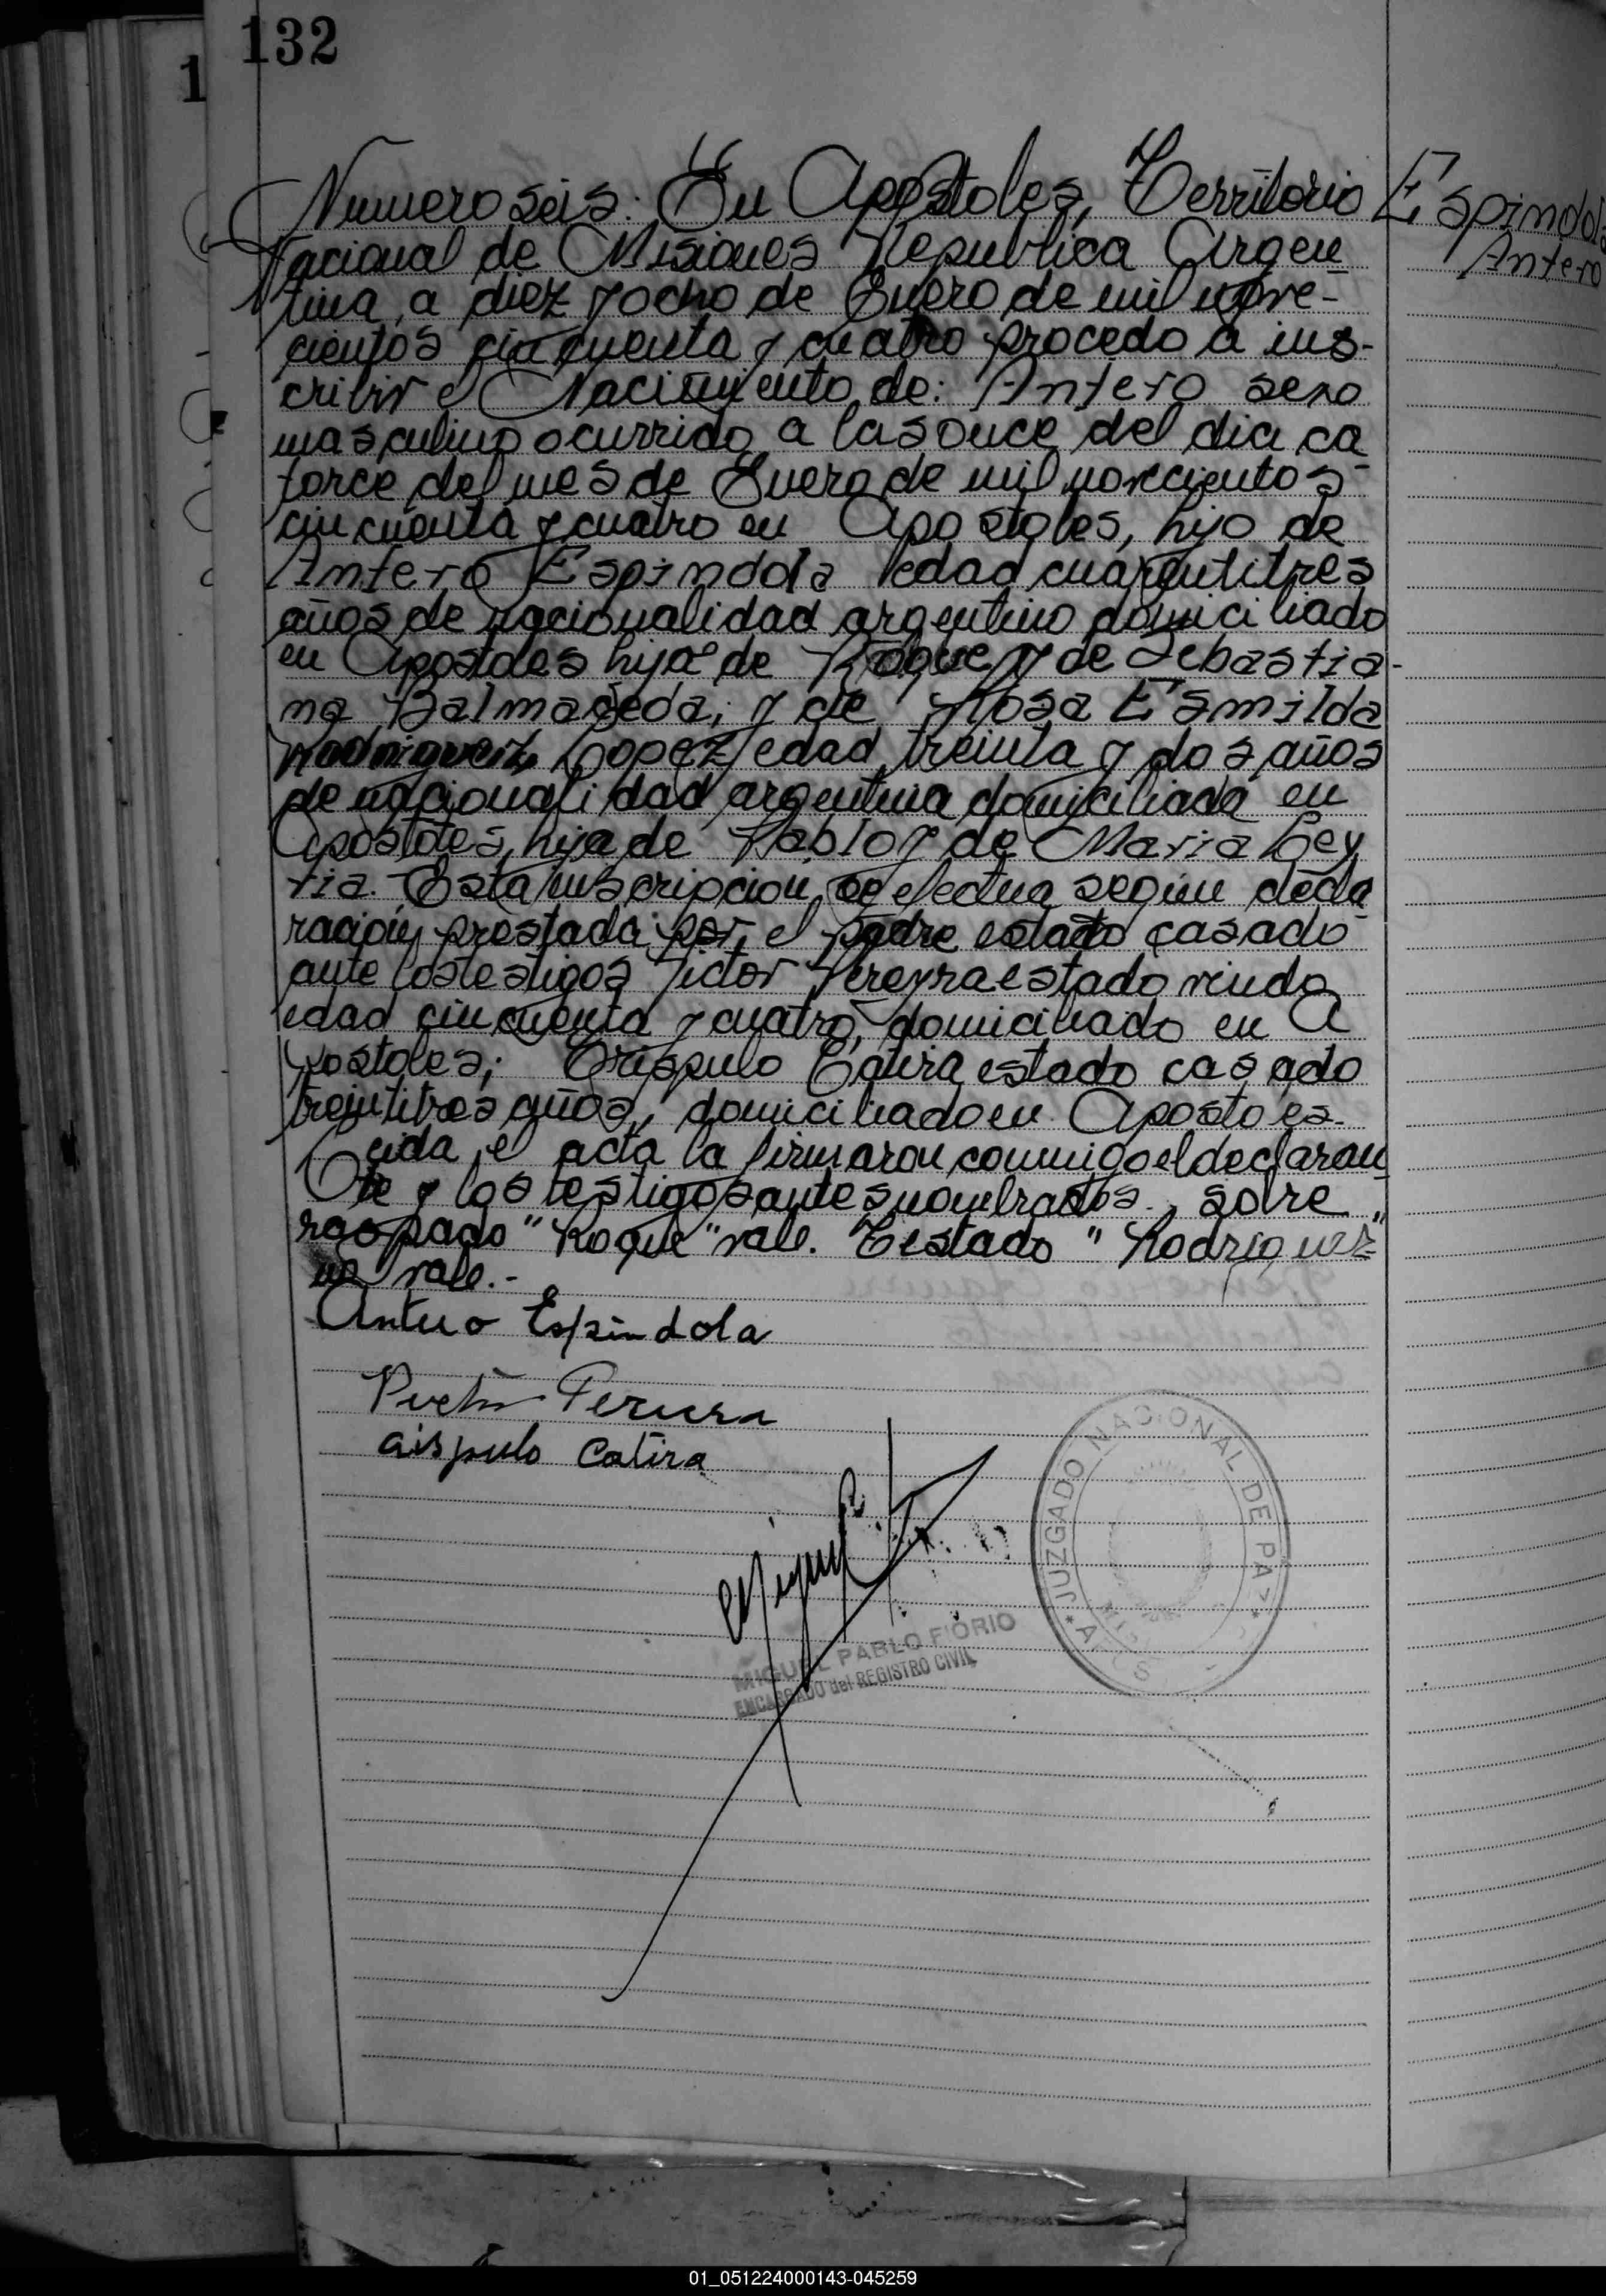 132
1
Numero seis. En Apostoles, Territorio
Nacional de Misiones Republica Argen
tina, a diez y ocho de Enero de mil nove-
cientos cincuenta y cuatro procedo a ins-
cribir el Nacimiento de: Antero sexo
masculino ocurrido a las once del dia ca
torce del mes de Enero de mil novecientos
cincuenta y cuatro en Apostoles, hijo de
Antero Espindola edad cuarentitres
años de nacionalidad argentino domiciliado
en Apostoles hijo de Roque y de Sebastia-
na Balmaceda; y de Rosa Esmilda
Rodriguez Lopez edad treinta y dos años
de nacionalidad argentina domiciliada en
Apostoles, hija de Pablo y de Maria Ley
tia. Esta inscripcion se efectua segun decla
racion prestada por el padre estado casado
ante los testigos Victor Pereyra estado viudo
edad cincuenta y cuatro, domiciliado en A
postoles; Crispulo Catira estado casado
treintitres años, domiciliado en Apostoles.
Leida el acta la firmaron conmigo el declaran
te y los testigos antes nombrados. sobre
raspado "Roque" vale. Testado "Rodriguez"
no vale.-
Antero Espindola
Victor Pereira
Crispulo Catira
MIGUEL PABLO FIORIO
ENCARGADO del REGISTRO CIVIL
JUZGADO NACIONAL DE PAZ
Espindola
Antero
01_051224000143-045259